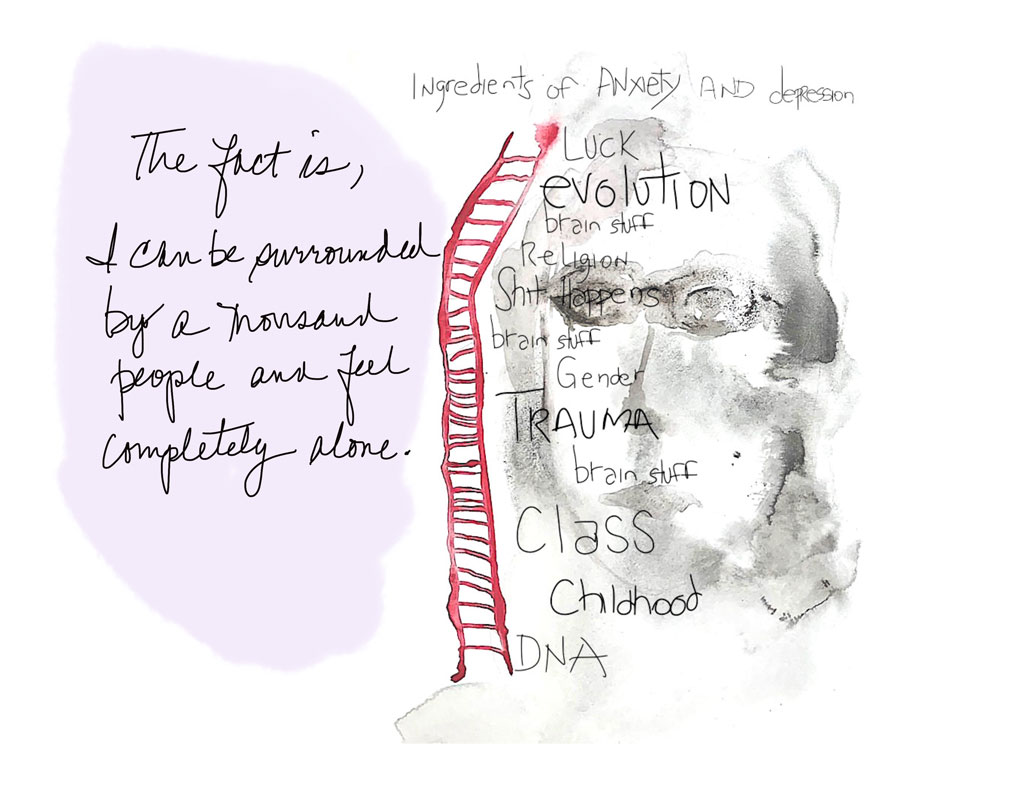 The fact is,
I can be surrounded
by a thousand
people and feel
completely alone.
Ingredients of Anxiety AND depression
Luck
evolution
brain stuff
Religion
Shit Happens
brain stuff
Gender
TRAUMA
brain stuff
Class
Childhood
DNA